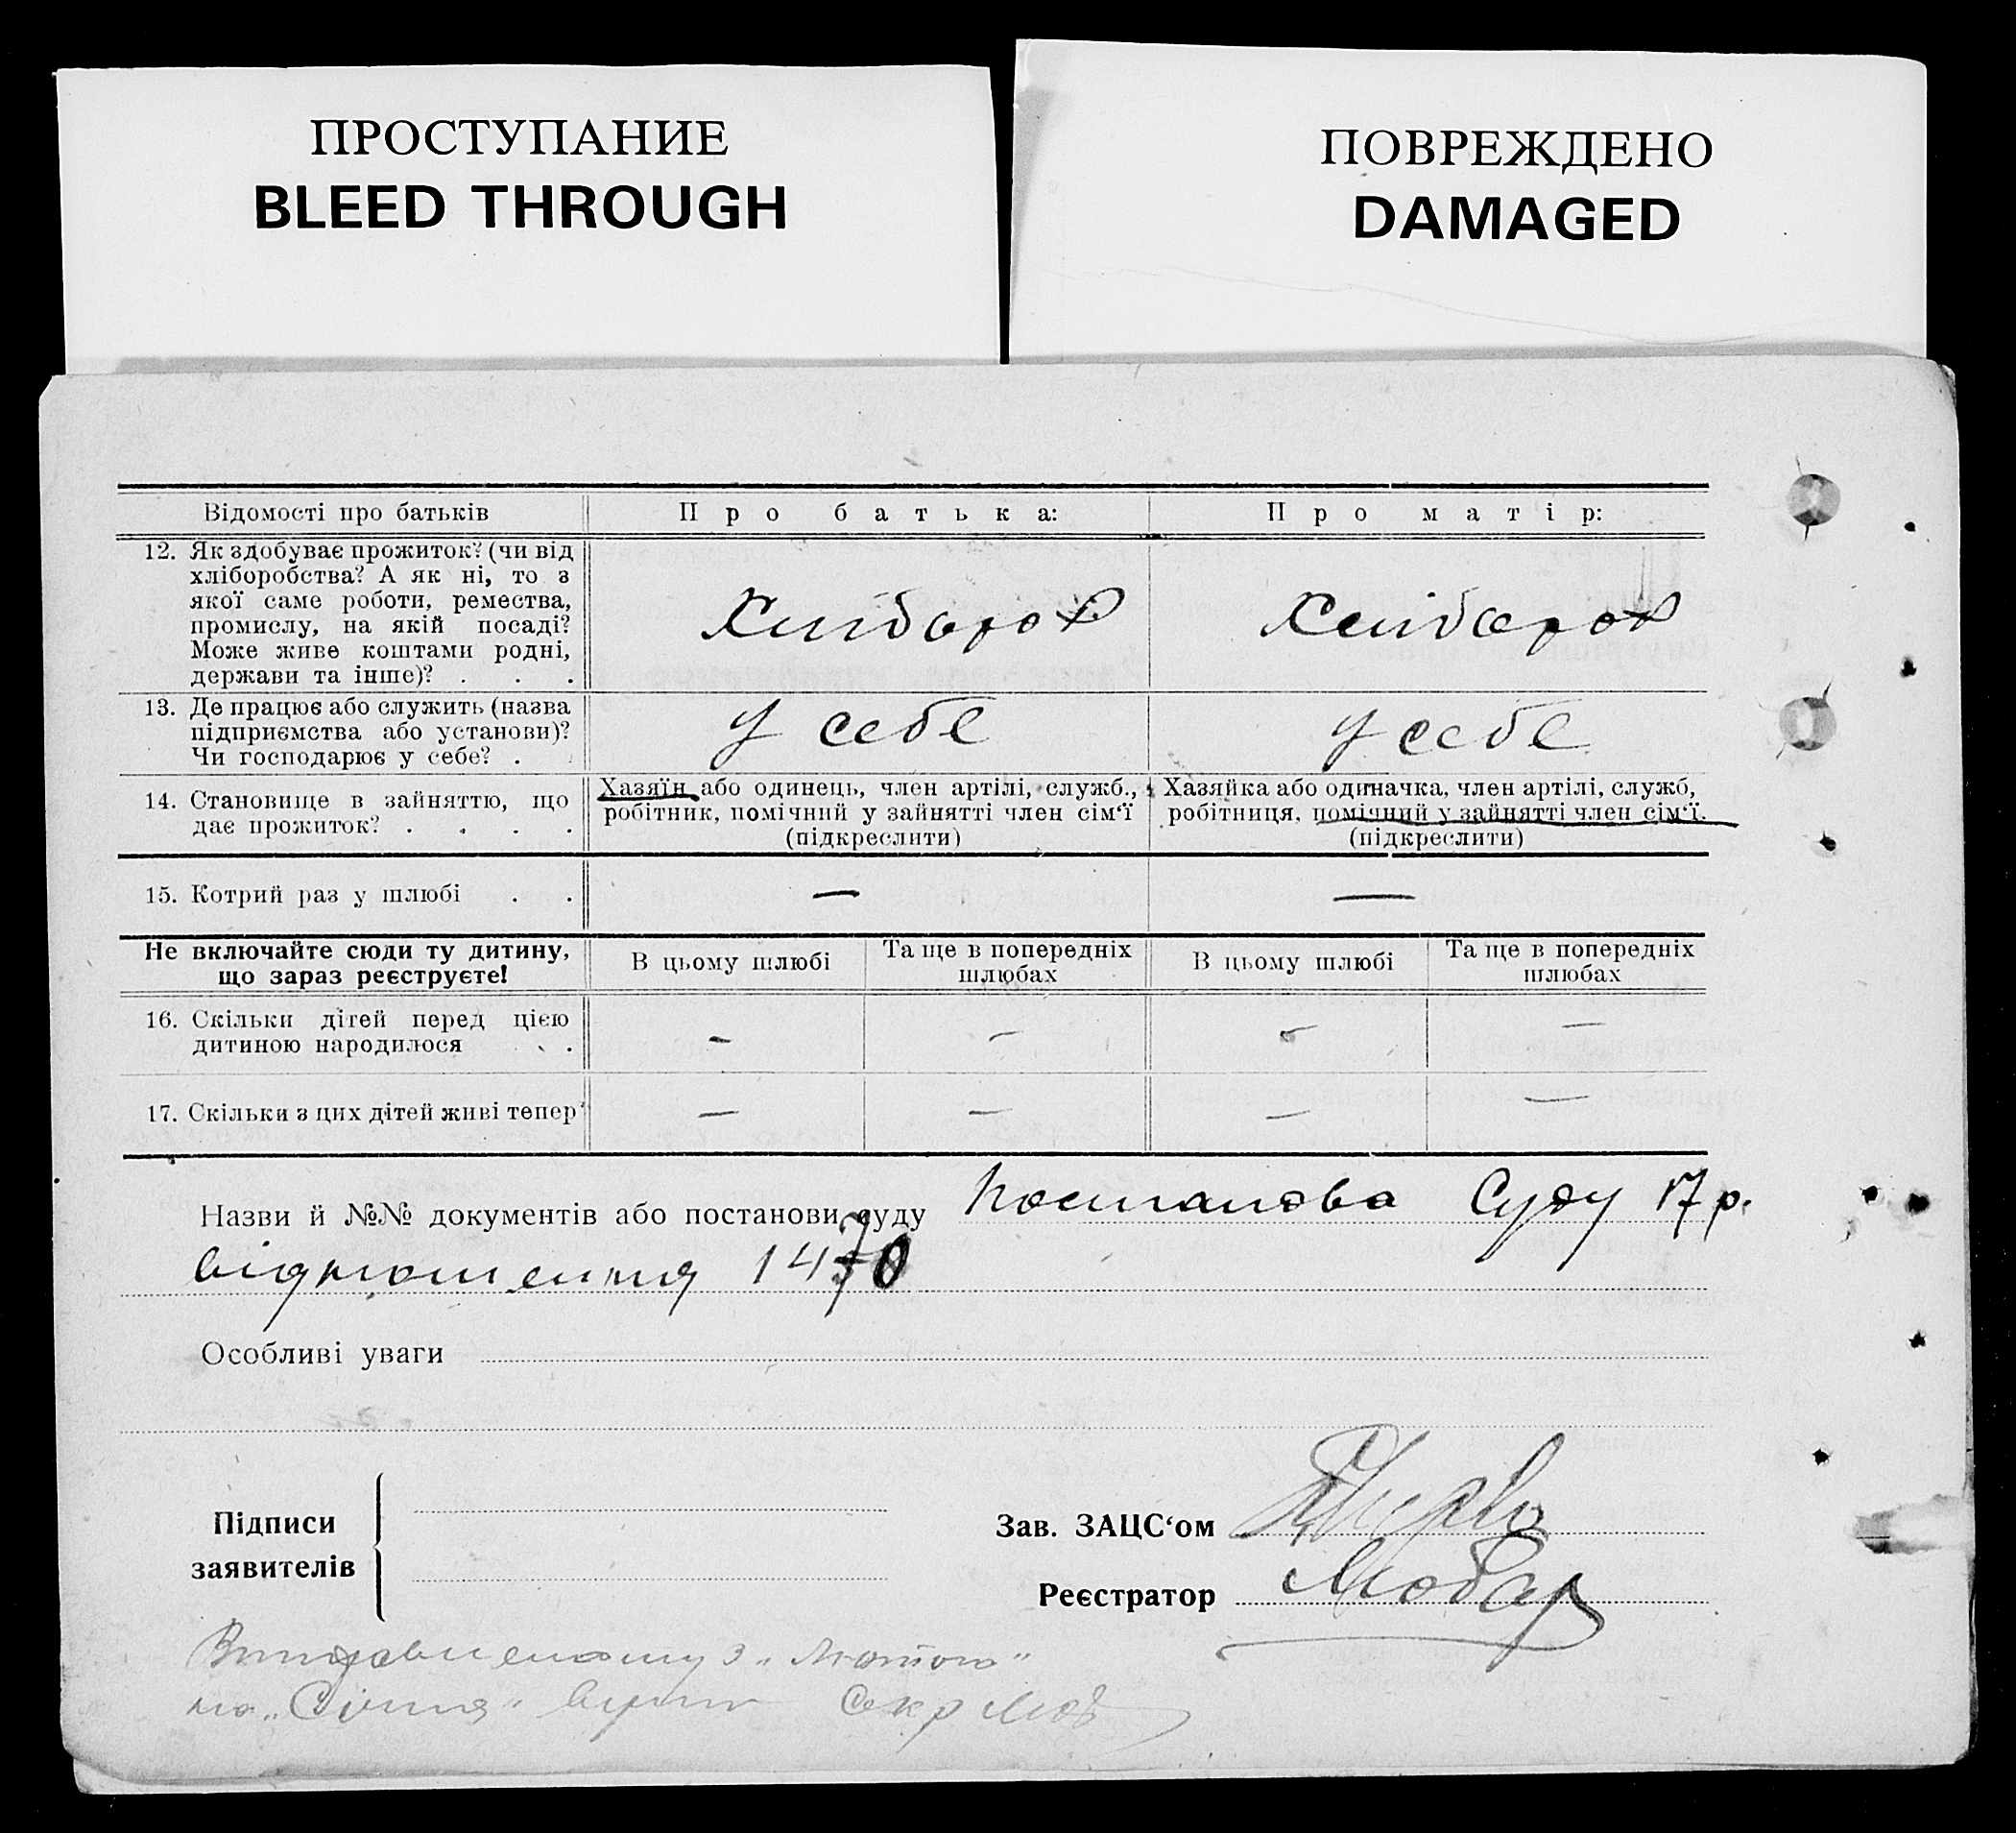 ПРОСТУПАНИЕ
BLEED THROUGH
ПОВРЕЖДЕНО
DAMAGED
Відомості про батьків
Про батька:
Про матір:
12. Як здобуває прожиток? (чи від
хліборобства? А як ні, то з
якої саме роботи, ремества,
промислу, на якій посаді?
Може живе коштами родні,
держави та інше)? . . .
Хлібороб
Хлібороб
13. Де працює або служить (назва
підприємства або установи)?
Чи господарює у себе? .
У себе
У себе
14. Становище в зайняттю, що
дає прожиток? . . . .
Хазяїн або одинець, член артілі, служб.,
робітник, помічний у зайнятті член сім'ї
(підкреслити)
Хазяйка або одиначка, член артілі, служб,
робітниця, помічний у зайнятті член сім'ї.
(підкреслити)
15. Котрий раз у шлюбі . .
—
—
Не включайте сюди ту дитину,
що зараз реєструєте!
В цьому шлюбі
Та ще в попередніх
шлюбах
В цьому шлюбі
Та ще в попередніх
шлюбах
16. Скільки дітей перед цією
дитиною народилося . .
– – – –
17. Скільки з цих дітей живі тепер
— — — —
Назви й №№ документів або постанови суду Постанова Суду 17 р.
відношення 1470
Особливі уваги
Підписи
заявителів
Зав. ЗАЦС'ом
Реєстратор Любар
з „Лютого"
на „Січня" Секр Люб